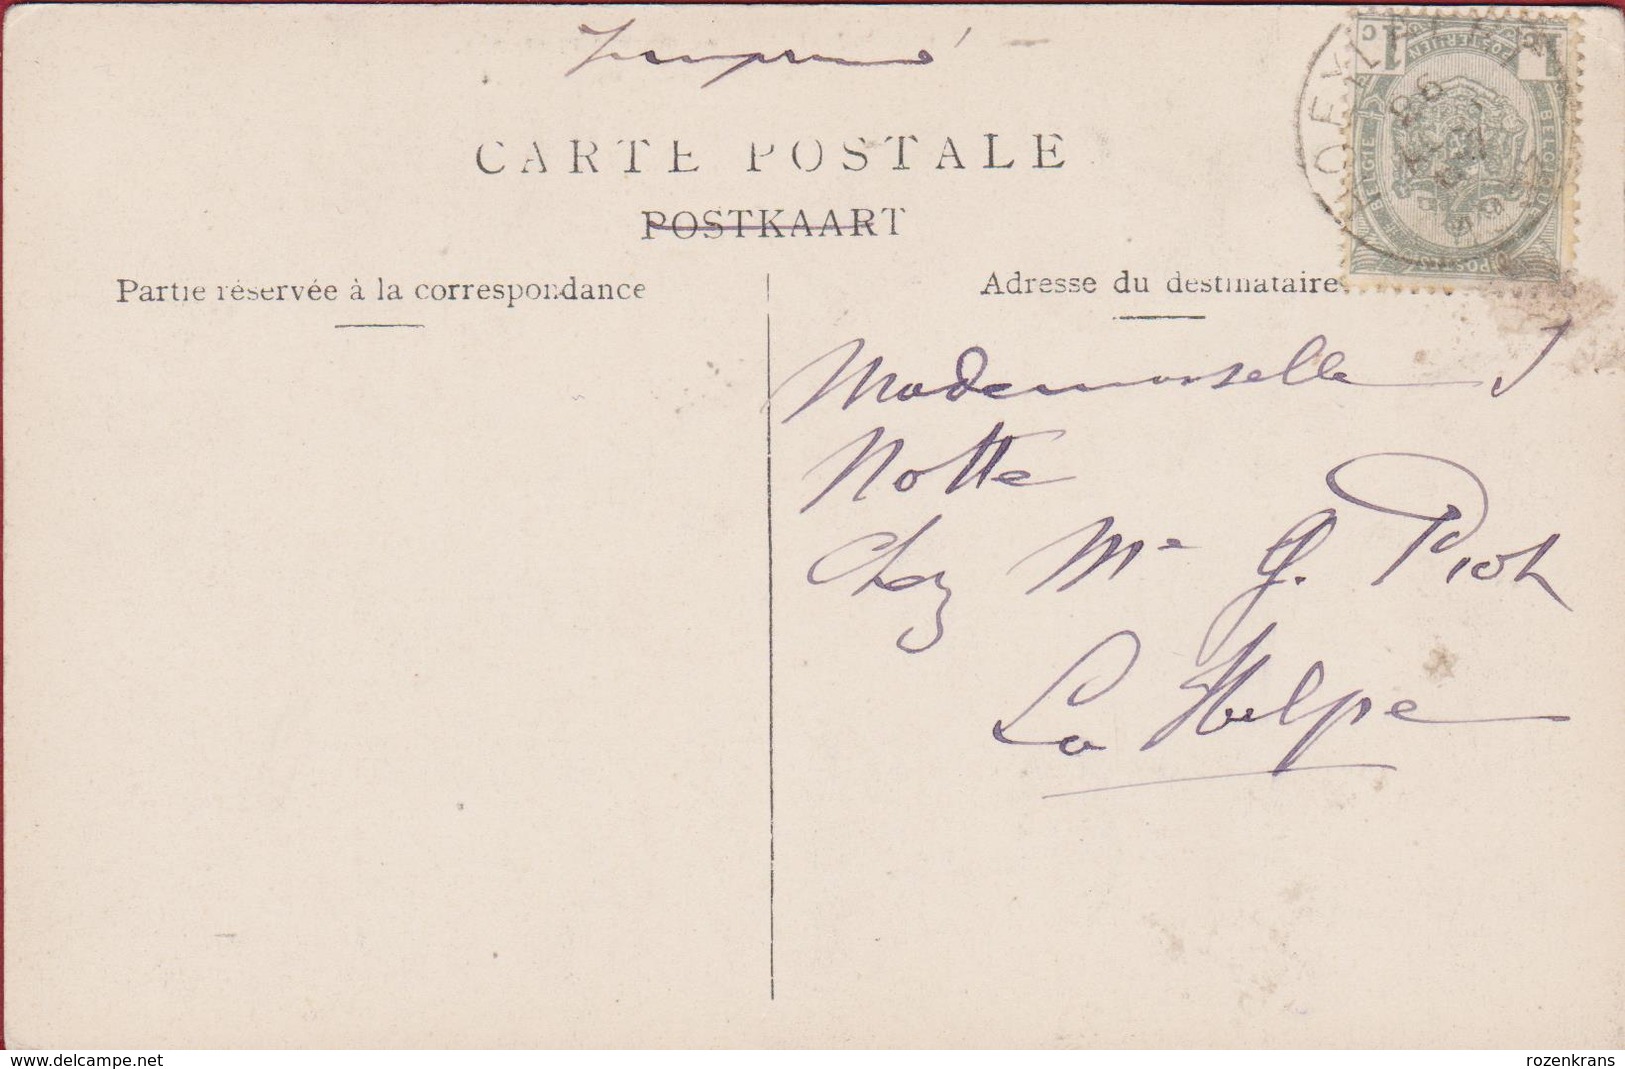 Imprimé
CARTE POSTALE
POSTKAART
Partie réservée à la correspondance
Adresse du destinataire
Mademoiselle J
Notte
Chez Me G. Piot
La Hulpe
1c 1c
BELGIE BELGIQUE
www.delcampe.net
rozenkrans